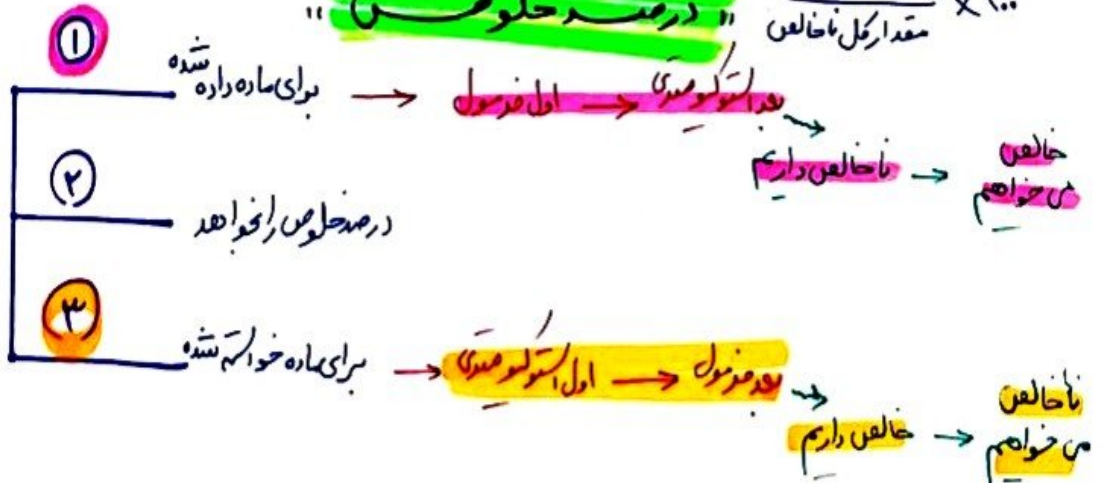 "درصد خلوص"
مقدار کل ناخالص
×۱۰۰
۱
برای ماده داده شده → اول فرمول → بعد استوکیومتری
ناخالص داریم → خالص می خواهیم
۲
درصد خلوص را بخواهد
۳
برای ماده خواسته شده → اول استوکیومتری → بعد فرمول
خالص داریم → ناخالص می خواهیم